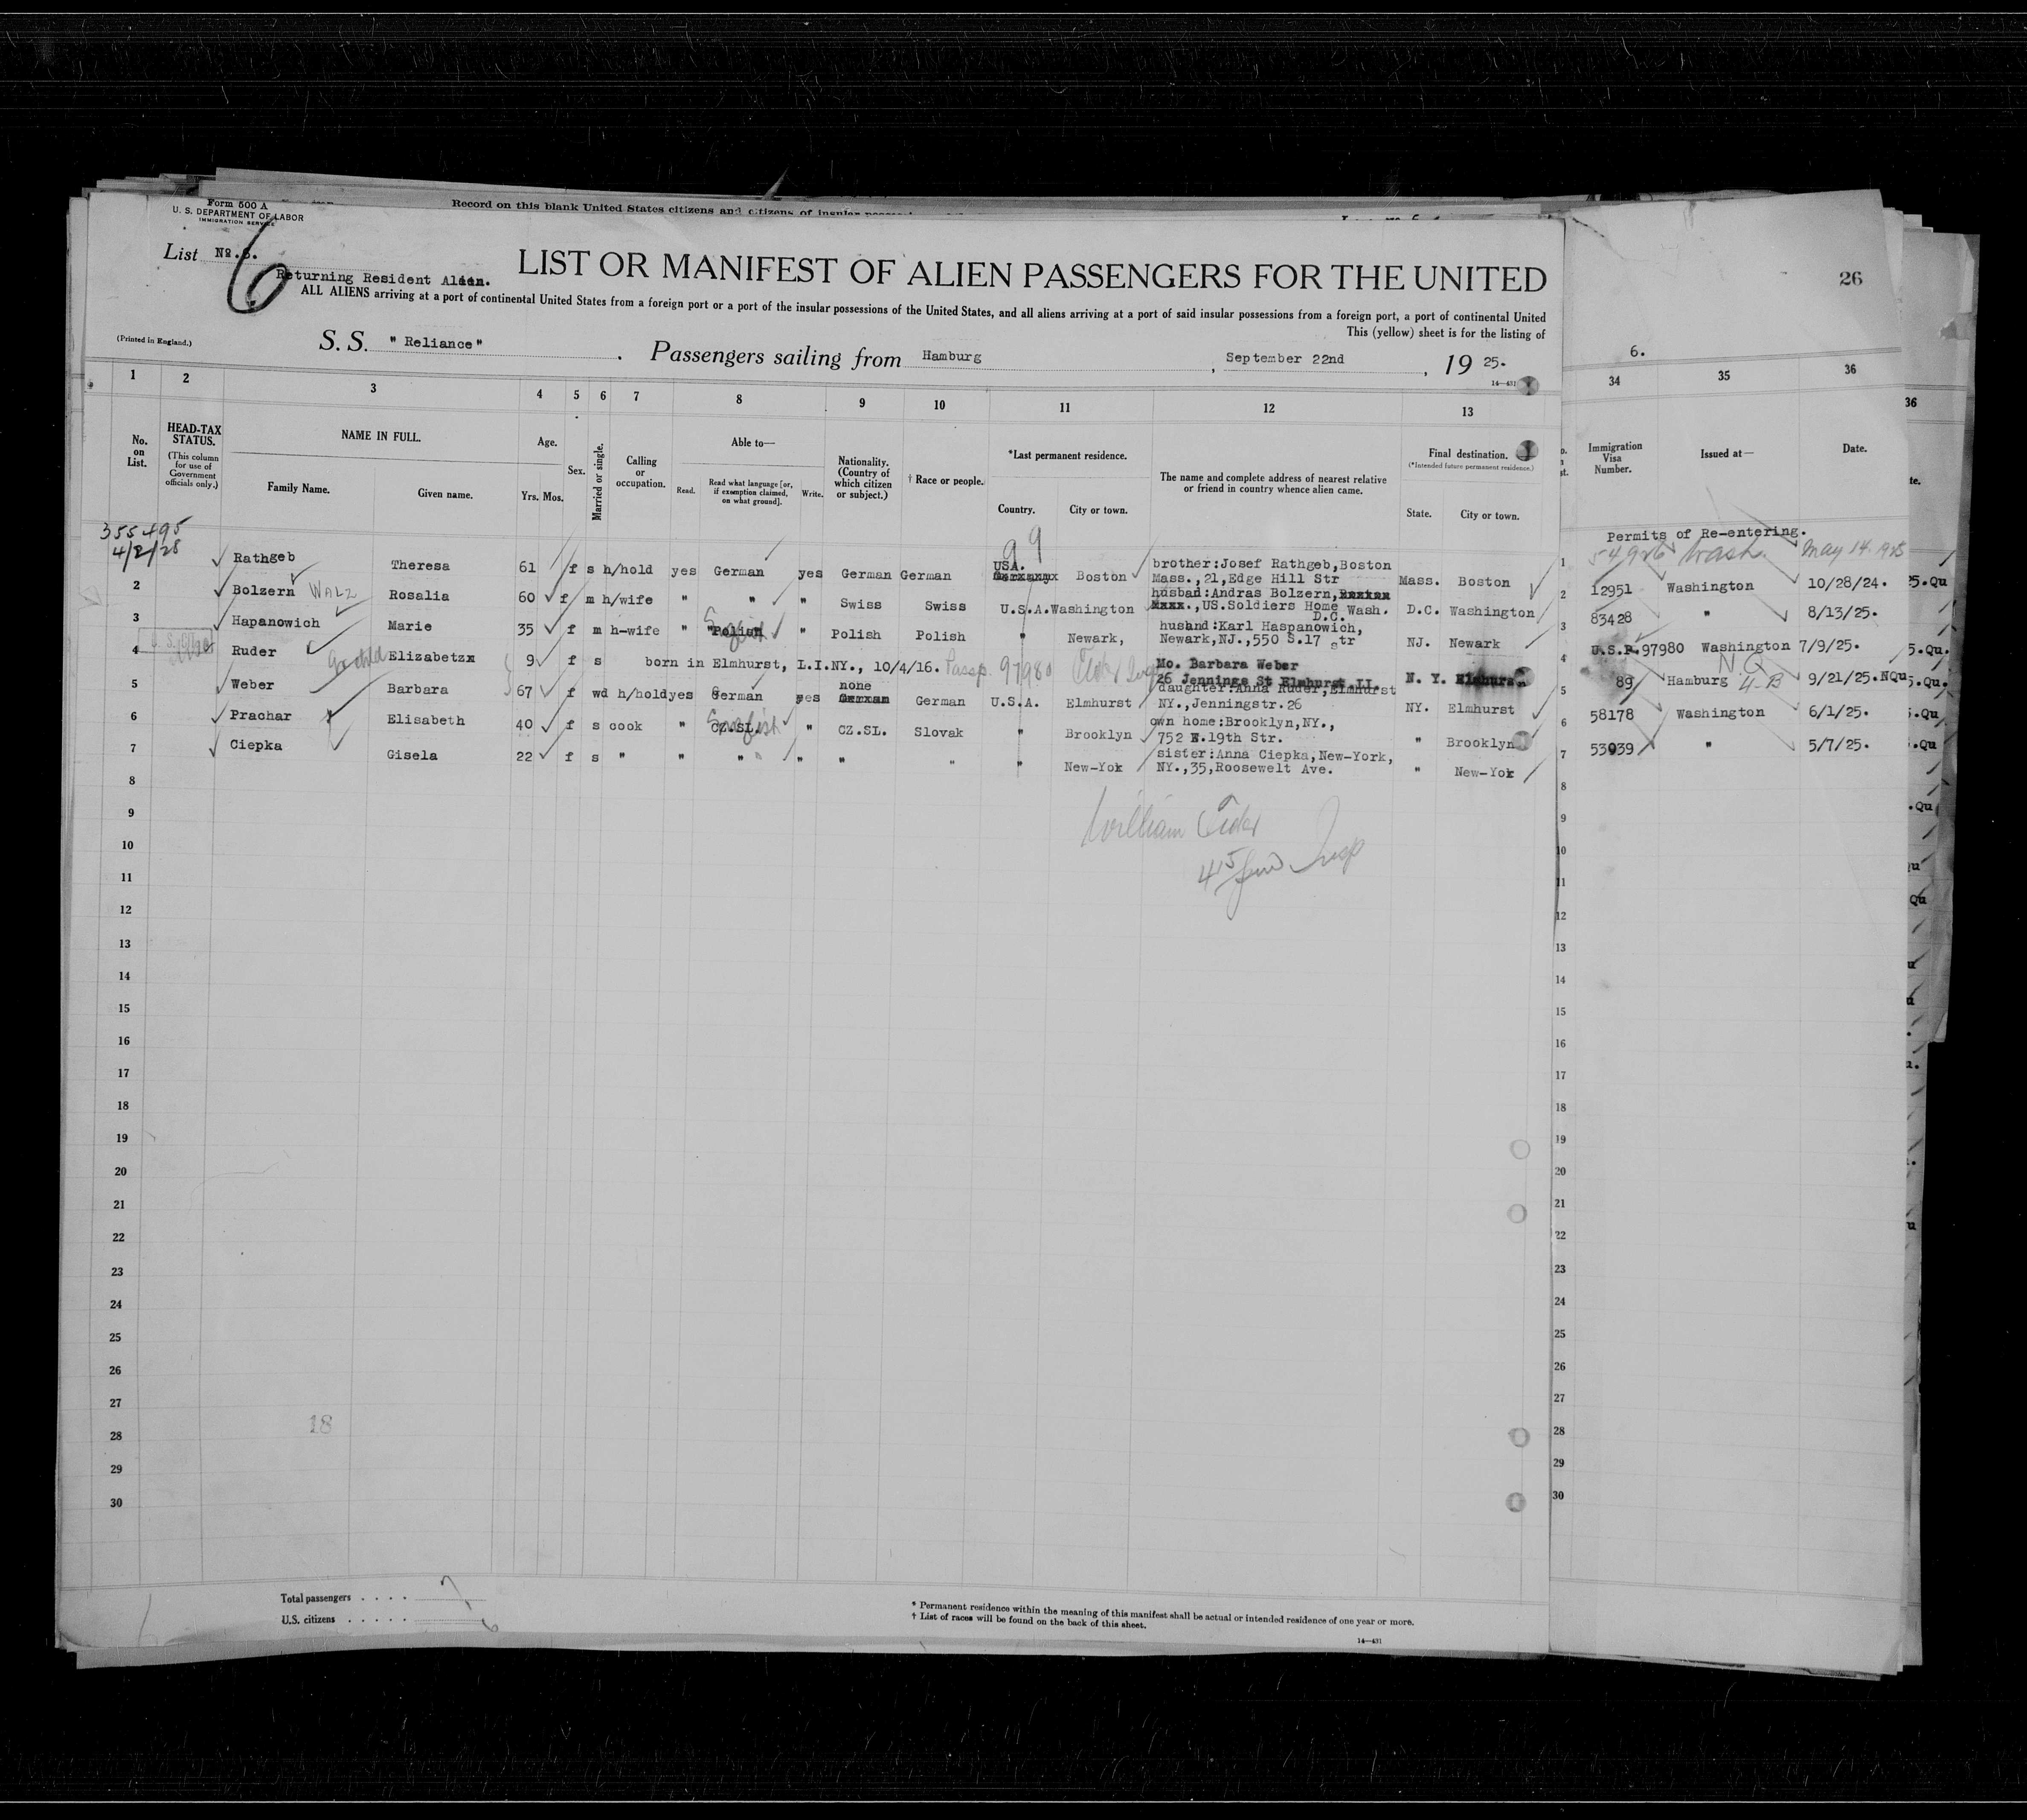 Form 500 A
U. S. DEPARTMENT OF LABOR
IMMIGRATION SERVICE
Record on this blank United States citizens and citizens of insular
List No. 6.
6
Returning Resident Alien.
LIST OR MANIFEST OF ALIEN PASSENGERS FOR THE UNITED
ALL ALIENS arriving at a port of continental United States from a foreign port or a port of the insular possessions of the United States, and all aliens arriving at a port of said insular possessions from a foreign port, a port of continental United
This (yellow) sheet is for the listing of
(Printed in England.)
S. S. " Reliance " . Passengers sailing from Hamburg , September 22nd , 19 25.
14—431
26
6.
1 2 3 4 5 6 7 8 9 10 11 12 13 34 35 36
36
No. on List.
HEAD-TAX STATUS.
(This column for use of Government officials only.)
NAME IN FULL.
Family Name. Given name.
Age.
Yrs. Mos.
Sex.
Married or single.
Calling or occupation.
Able to—
Read. Read what language [or, if exemption claimed, on what ground]. Write.
Nationality. (Country of which citizen or subject.)
† Race or people.
*Last permanent residence.
Country. City or town.
The name and complete address of nearest relative or friend in country whence alien came.
Final destination.
(*Intended future permanent residence.)
State. City or town.
Immigration Visa Number.
Issued at—
Date.
355495
4/2/28
99
Permits of Re-entering.
54926 Wash. May 14. 1925
Rathgeb Theresa 61 f s h/hold yes German yes German German USA. Boston brother:Josef Rathgeb,Boston Mass. Boston
Mass.,21,Edge Hill Str
1 12951 Washington 10/28/24.
2 Bolzern WALZ Rosalia 60 f m h/wife " " " Swiss Swiss U.S.A. Washington husban:Andras Bolzern, D.C. Washington
US.Soldiers Home Wash.
D.C.
2 83428 " 8/13/25.
3 Hapanowich Marie 35 f m h-wife " Polish " Polish Polish " Newark, husband:Karl Haspanowich, NJ. Newark
Newark,NJ.,550 S.17 str
3 U.S.P. 97980 Washington 7/9/25.
4 Ruder Gr child Elizabetzx 9 f s born in Elmhurst, L.I.NY., 10/4/16. Passp. 97980 Mo. Barbara Weber N. Y. Elmhurst
26 Jennings St Elmhurst LI.
4 89 Hamburg NQ 4-B 9/21/25. NQu
5 Weber Barbara 67 f wd h/hold yes German yes none German U.S.A. Elmhurst daughter:Anna Ruder,Elmhurst NY. Elmhurst
NY.,Jenningstr.26
5 58178 Washington 6/1/25.
6 Prachar Elisabeth 40 f s cook " CZ.SL. English " CZ.SL. Slovak " Brooklyn own home:Brooklyn,NY., " Brooklyn
752 E.19th Str.
6 53039 " 5/7/25.
7 Ciepka Gisela 22 f s " " " " " " " New-Yok sister:Anna Ciepka,New-York, " New-Yok
NY.,35,Roosewelt Ave.
7
8
9
William
Insp
10
11
12
13
14
15
16
17
18
19
20
21
22
23
24
25
26
27
18
28
29
30
Total passengers . . . . 7
U.S. citizens . . . . .
* Permanent residence within the meaning of this manifest shall be actual or intended residence of one year or more.
† List of races will be found on the back of this sheet.
14—431